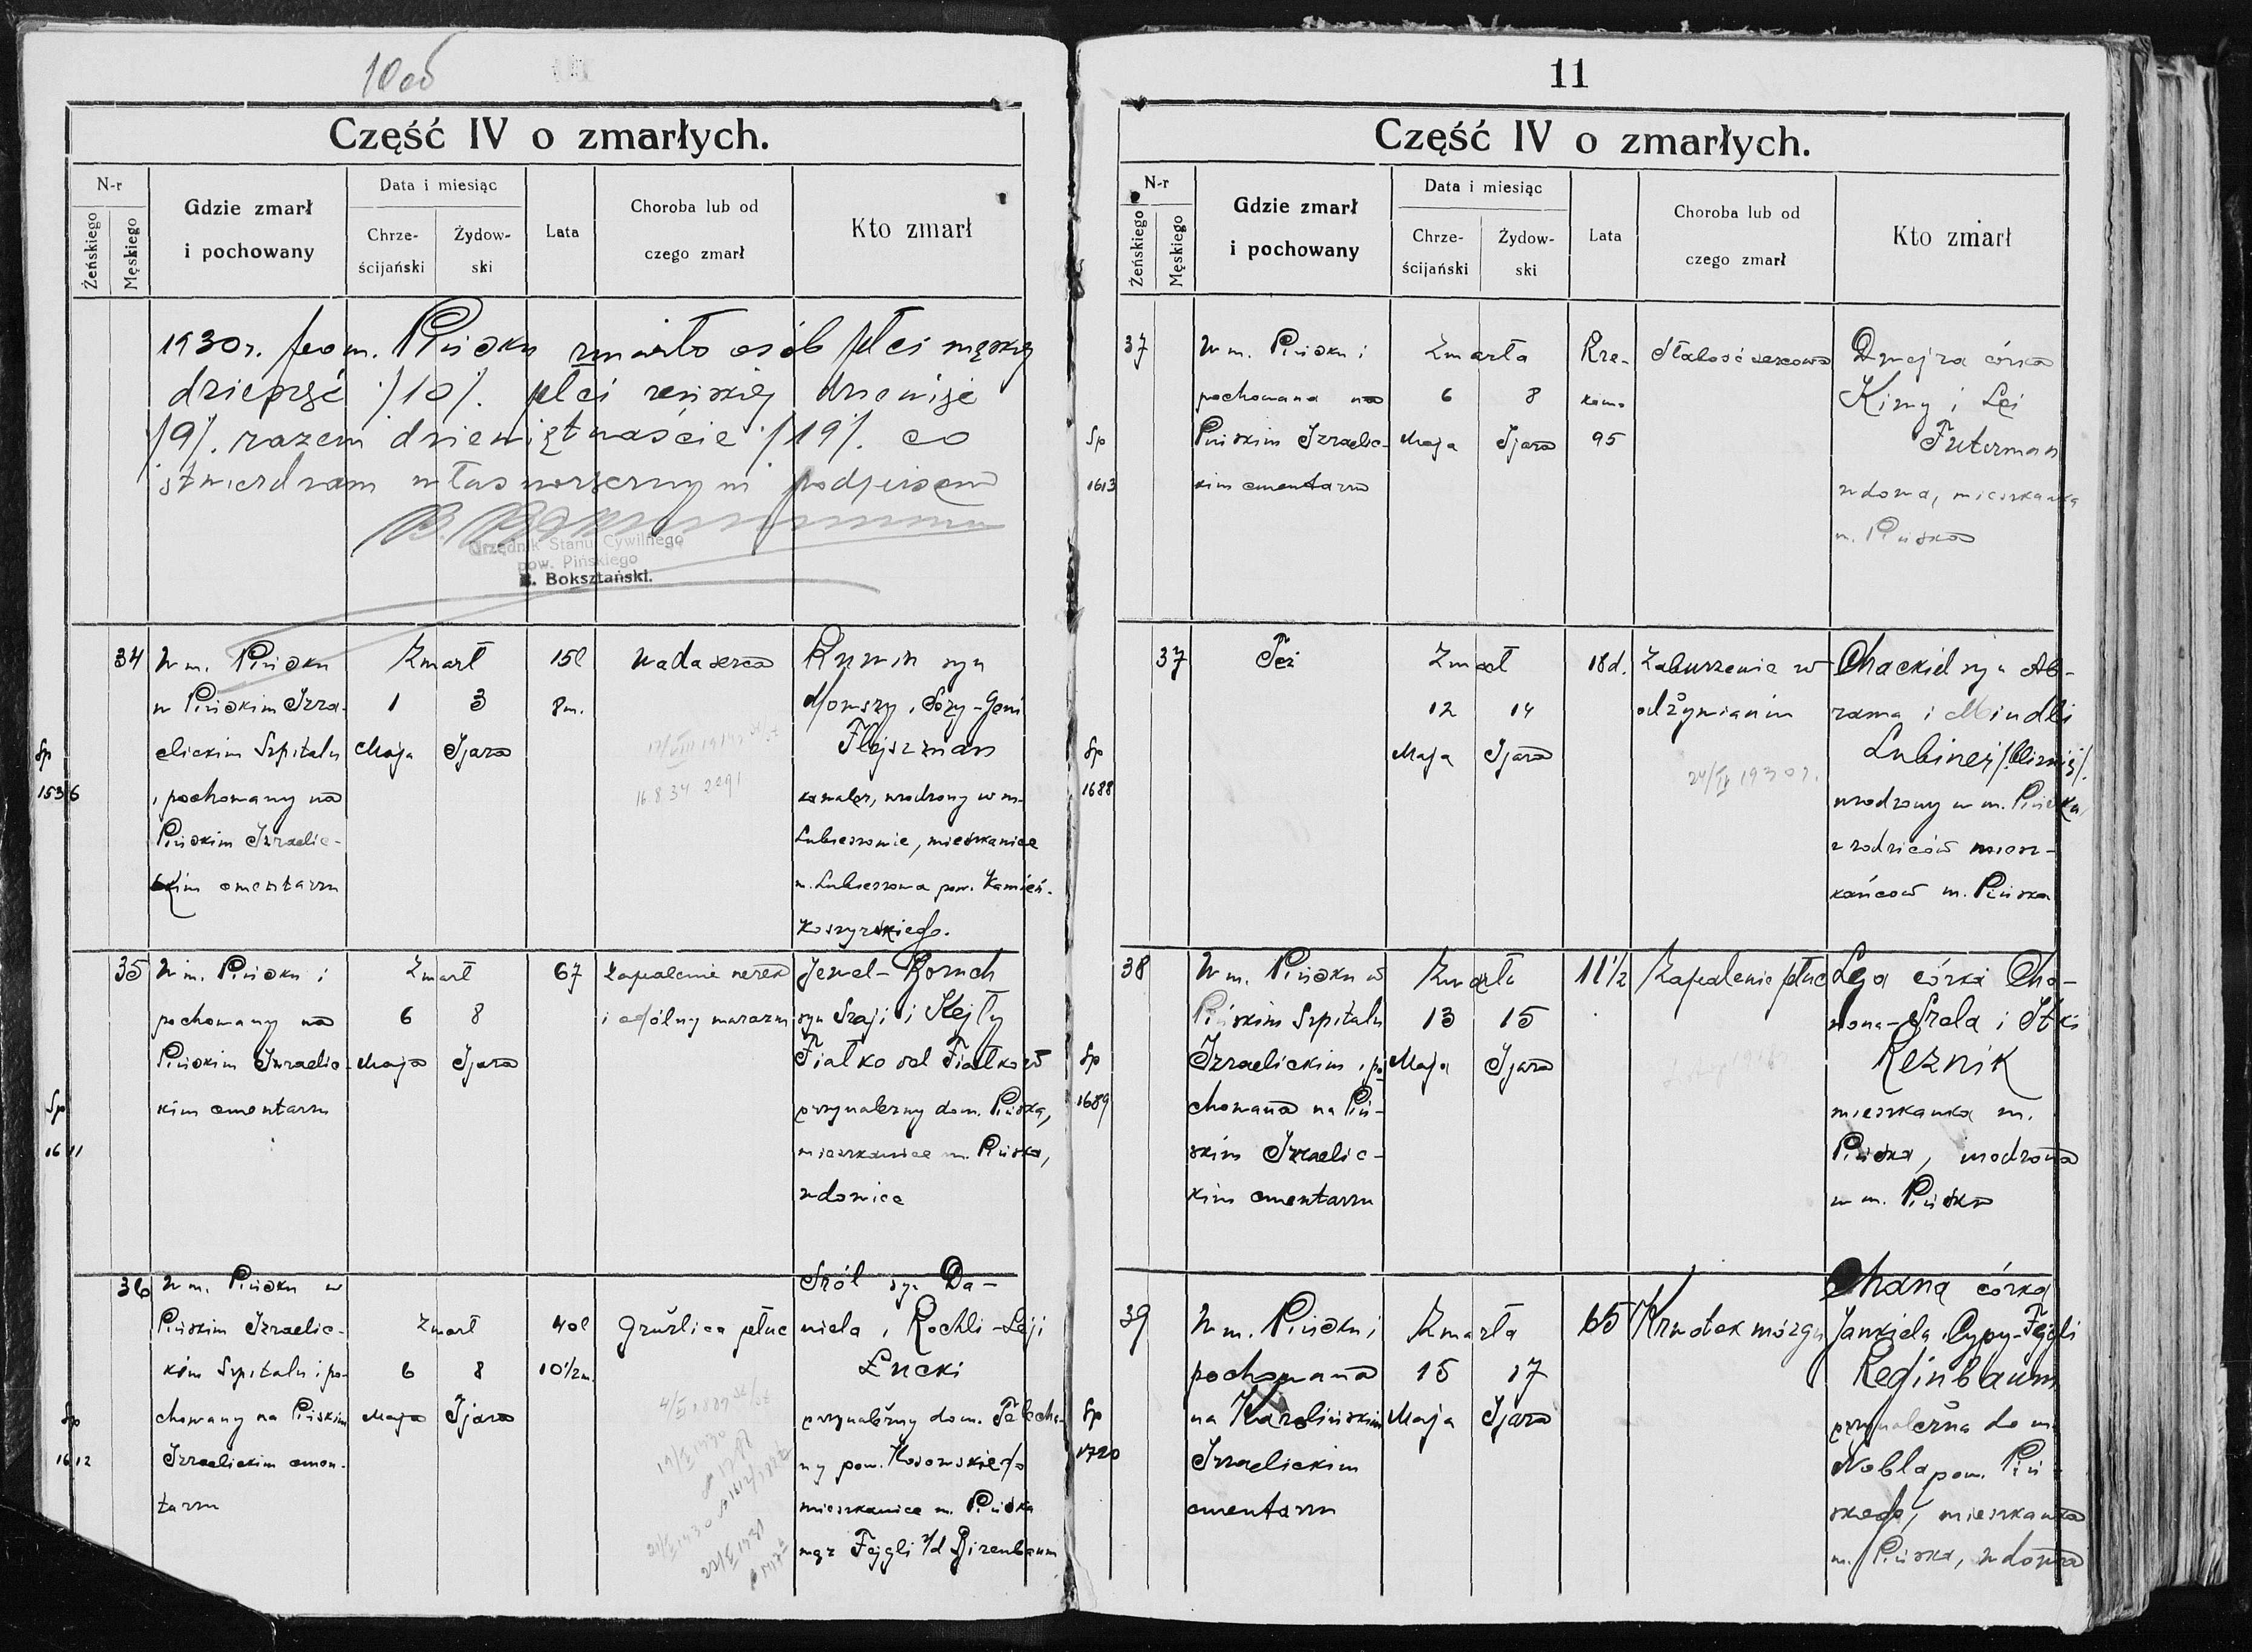 10 od
Część IV o zmarłych.
N-r
Żeńskiego
Męskiego
Gdzie zmarł
i pochowany
Data i miesiąc
Chrze-
ścijański
Żydow-
ski
Lata
Choroba lub od
czego zmarł
Kto zmarł
1930 r. po m. Pińsku zmarło osób płci męskiej
dziesięć /10/. płci żeńskiej dziewięć
/9/. razem dziewiętnaście /19/. co
stwierdzam własnoręcznym podpisem
Urzędnik Stanu Cywilnego
pow. Pińskiego
B. Boksztański.
Sp
1536
34
W m. Pińsku
w Pińskim Izra-
elickim Szpitalu
i pochowany na
Pińskim Izraelic-
kim cmentarzu
Zmarł
1
Maja
3
Ijara
15l
8m.
Wada serca
16.8.34 2291
Ruwin syn
Mowszy i Sozy-Geni
Flejszman
kawaler, urodzony w m.
Lubieszowie, mieszkaniec
m. Lubieszowa pow. Kamień-
Koszyrskiego.
Sp
1611
35
W m. Pińsku i
pochowany na
Pińskim Izraelic-
kim cmentarzu
Zmarł
6
Maja
8
Ijara
67
Zapalenie nerek
i ogólny marazm
Jewel-Boruch
syn Sraji i Kejły
Fiałko vel Fiałków
przynależny do m. Pińska,
mieszkaniec m. Pińska,
wdowiec
Sp
1612
36
W m. Pińsku w
Pińskim Izraelic-
kim Szpitalu i po-
chowany na Pińskim
Izraelickim cmen-
tarzu
Zmarł
6
Maja
8
Ijara
40l
10½m.
Gruźlica płuc
Sról syn Da-
niela i Rochli-Leji
Łucki
przynależny do m. Telecha-
ny pow. Kosowskiego
mieszkaniec m. Pińska
mąż Fejgli z/d Birenbaum
11
Część IV o zmarłych.
N-r
Żeńskiego
Męskiego
Gdzie zmarł
i pochowany
Data i miesiąc
Chrze-
ścijański
Żydow-
ski
Lata
Choroba lub od
czego zmarł
Kto zmarł
Sp
1613
37
W m. Pińsku i
pochowana na
Pińskim Izraelic-
kim cmentarzu
Zmarła
6
Maja
8
Ijara
Rze-
komo
95
Słabość sercowa
Dwejra córka
Kimy i Lei
Futerman
wdowa, mieszkanka
m. Pińska
Sp
1688
37
Też
Zmarł
12
Maja
14
Ijara
18d.
Zaburzenie w
odżywianiu
24/IV 1930 r.
Chackiel syn Ab-
rama i Mindli
Lubinej /bliźnię/.
urodzony w m. Pińsku
z rodziców miesz-
kańców m. Pińska
Sp
1689
38
W m. Pińsku w
Pińskim Szpitalu
Izraelickim i po-
chowana na Piń-
skim Izraelic-
kim cmentarzu
Zmarła
13
Maja
15
Ijara
11½
Zapalenie płuc
Leja córka Cho-
nona-Srela i Itki
Reznik
mieszkanka m.
Pińska, urodzona
w m. Pińsku
Sp
1720
39
W m. Pińsku i
pochowana
na Karolińskim
Izraelickim
cmentarzu
Zmarła
15
Maja
17
Ijara
65
Krwotok mózgu
Chana córka
Jankiela i Cypy-Fejgli
Reginbaum
przynależna do m.
Nobla pow. Piń-
skiego, mieszkanka
m. Pińska, wdowa